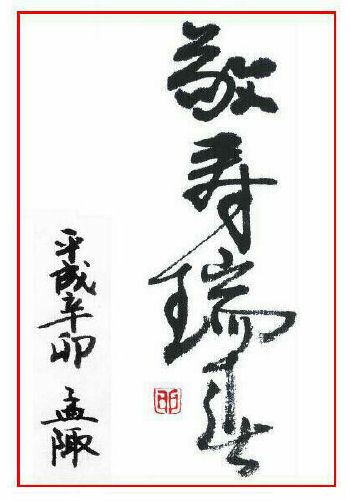 敬寿瑞春
平成辛卯 孟陬